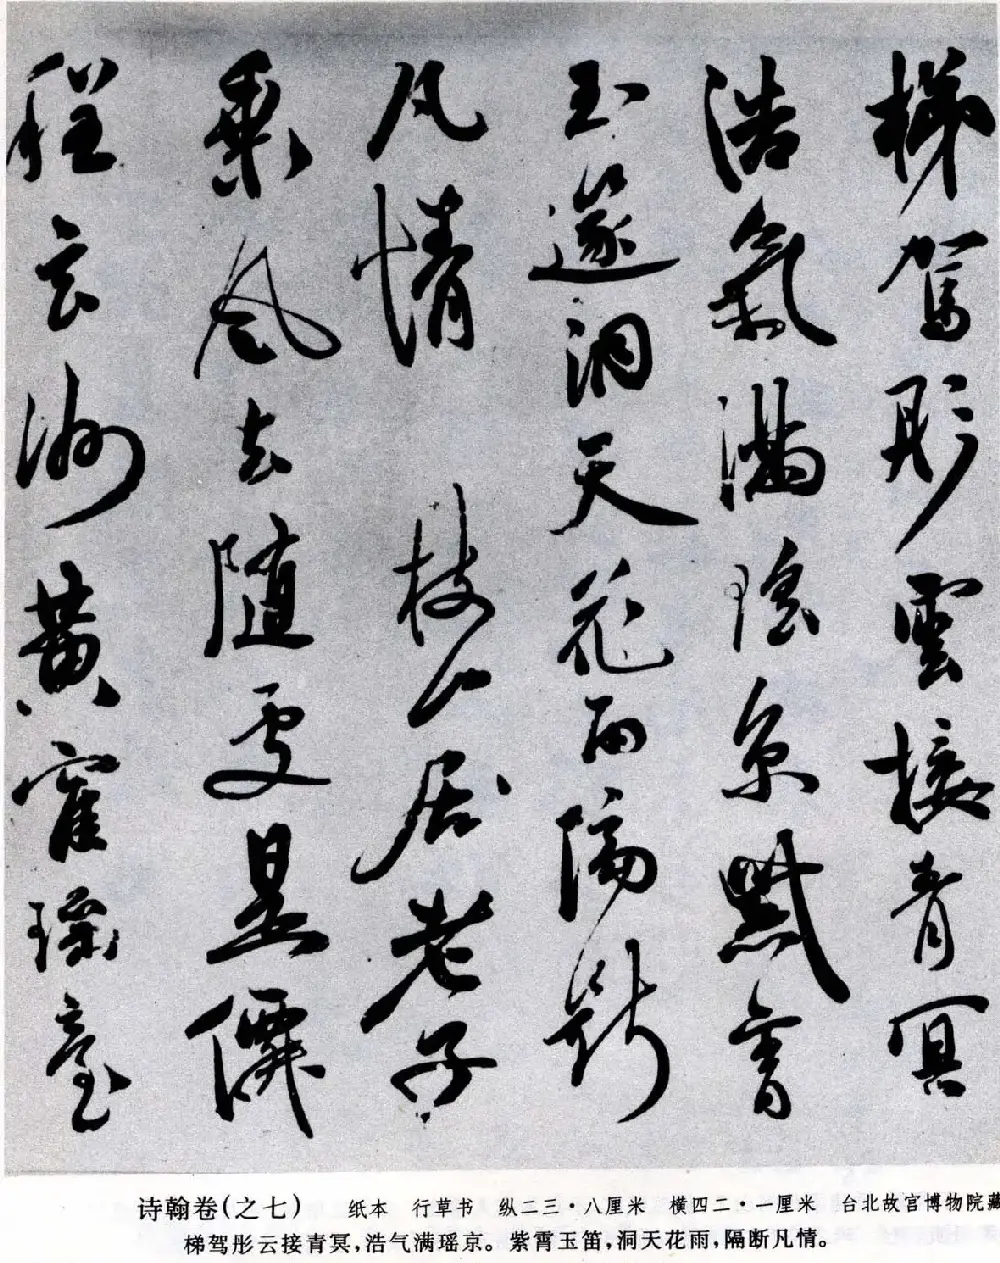 梯駕彤雲接青冥
浩氣滿瑤京紫霄
玉篴洞天花雨隔斷
凡情 枝山居老子
乘風去隨處是僊
程玄洲黃寉瑤臺
诗翰卷(之七) 纸本 行草书 纵二三·八厘米 横四二·一厘米 台北故宫博物院藏
梯驾彤云接青冥,浩气满瑶京。紫霄玉笛,洞天花雨,隔断凡情。